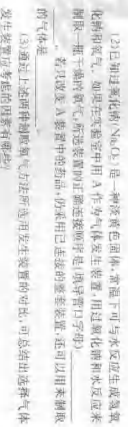 (2)已知过氧化钠(Na₂O₂)是一种淡黄色固体,常温下可与水反应生成氢氧
化钠和氧气。如果在实验室中用 A 作为气体发生装置,用过氧化钠和水反应来
制取一瓶干燥的氧气,所选装置的正确连接顺序是(填导管口字母)
。若只改变 A 装置中的药品,仍采用已连接的整套装置,还可以用来制取
的气体是
(3)通过上述两种制取氧气方法所选用发生装置的对比,可总结出选择气体
发生装置应考虑的因素有哪些?